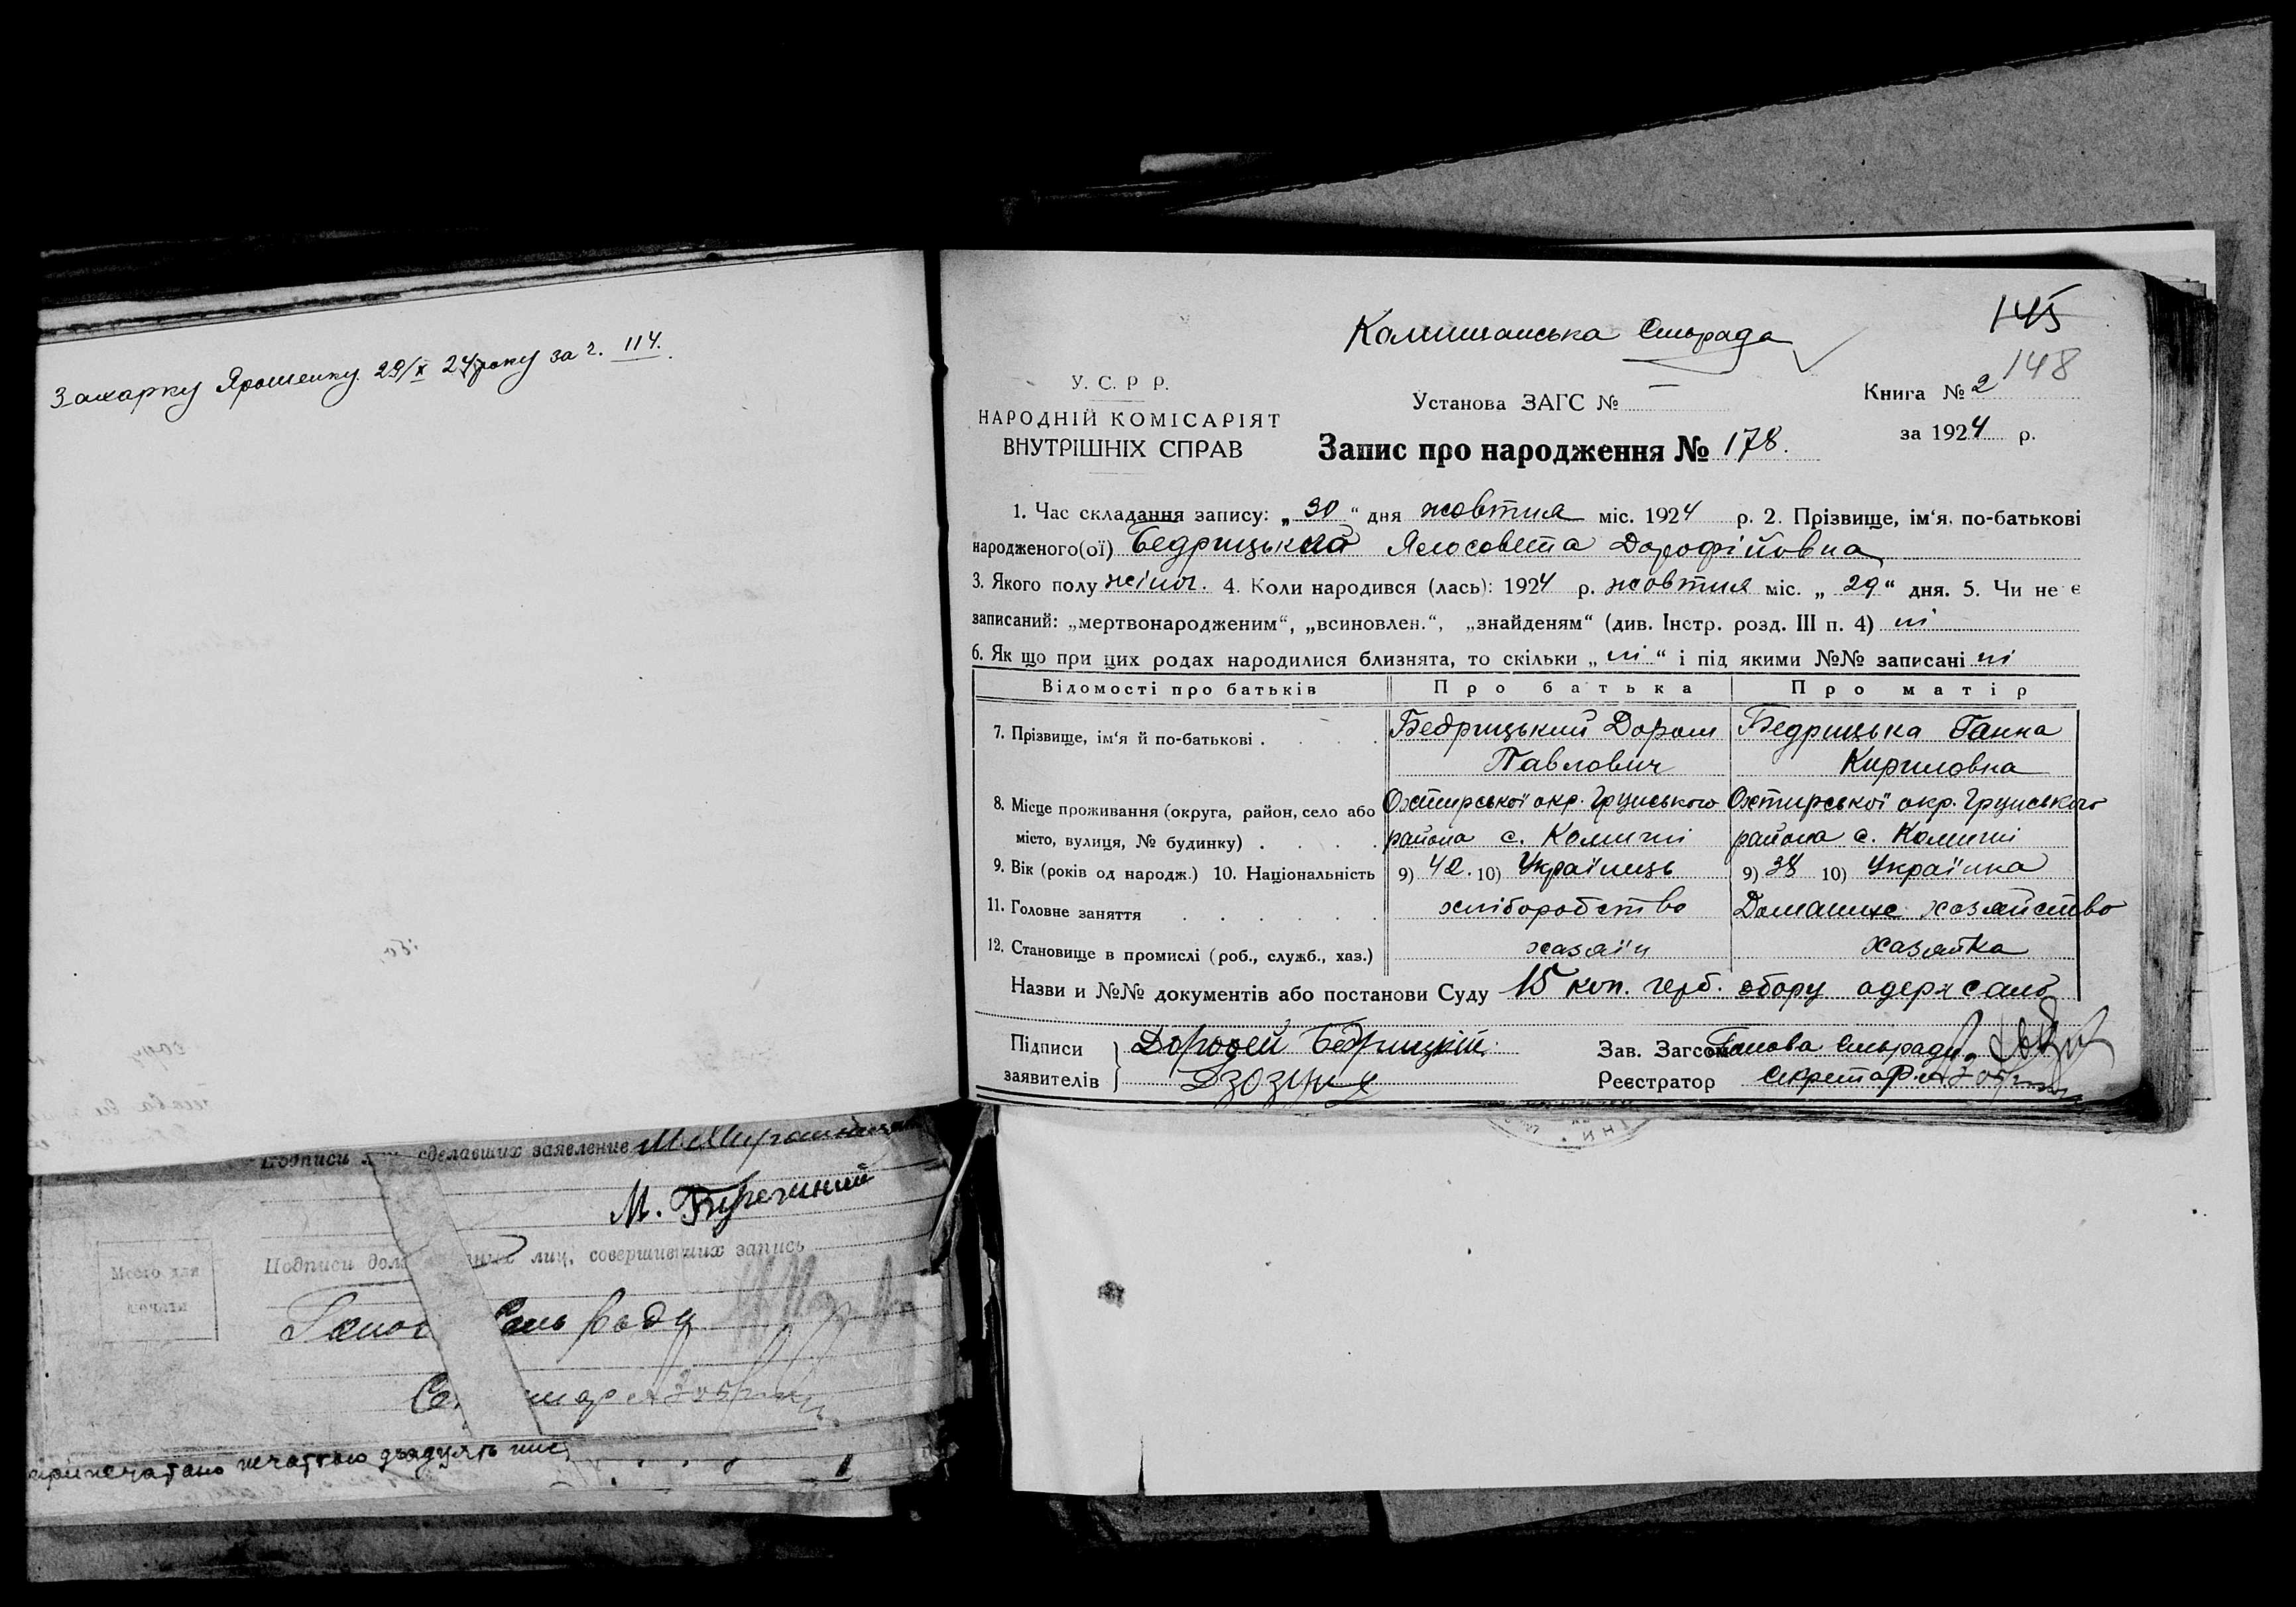 Захарку Ярошенку 29/X 24 року за ч. 114.
Подписи сделавших заявление
М.
Подписи лиц, совершивших запись
Место для
печати
Голов Сель Ради
припечатано печаттю двадцять
Комишанська Сільрада
145
148
У. С. Р Р.
НАРОДНІЙ КОМІСАРІЯТ
ВНУТРІШНІХ СПРАВ
Установа ЗАГС № —
Книга № 2
за 1924 р.
Запис про народження № 178.
1. Час складання запису: „ 30 “ дня жовтня міс. 1924 р. 2. Прізвище, ім‘я, по-батькові
народженого(ої) Бедрицька Ялосовета Дорофійовна
3. Якого полу жіноч. 4. Коли народився (лась): 1924 р. жовтня міс. „ 29 “ дня. 5. Чи не є
записаний: „мертвонародженим“, „всиновлен.“, „знайденям“ (див. Інстр. розд. III п. 4) ні
6. Як що при цих родах народилися близнята, то скільки „ ні “ і під якими №№ записані ні
Відомості про батьків Про батька Про матір
7. Прізвище, ім‘я й по-батькові . . . . Бедрицький Дорош Бедрицька Ганна
Павлович Кириловна
8. Місце проживання (округа, район, село або Охтирської окр. Груньського Охтирської окр. Груньського
місто, вулиця, № будинку) . . . . района с. Комиші района с. Комиші
9. Вік (років од народж.) 10. Національність 9) 42. 10) Українець 9) 38 10) Українка
11. Головне заняття . . . . . . хліборобство Домашнє хозяйство
12. Становище в промислі (роб., служб., хаз.) хазяїн хазяйка
Назви и №№ документів або постанови Суду 15 коп. герб. збору одержано
Підписи Дорофей Бедрицкій
заявителів
Зав. Загсом Голова сільради
Реєстратор Секретар